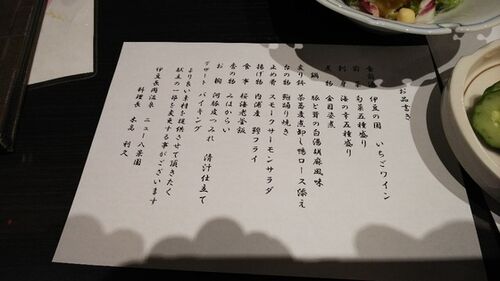 お品書き
食前酒 伊豆の国 いちごワイン
前菜 旬菜五種盛り
刺身 海の幸五種盛り
煮物 金目姿煮
鍋 豚と茸の白湯胡麻風味
変り鉢 茶蕎麦煮卸し鴨ロース添え
台の物 鮑踊り焼き
止め肴 スモークサーモンサラダ
揚げ物 内浦産 鯵フライ
食事 桜海老釜飯
香の物 みはからい
お椀 河豚皮つみれ 清汁仕立て
デザート バイキング
より良い素材を提供させて頂きたく
献立の一部を変更する事がございます
伊豆長岡温泉 ニュー八景園
料理長 末高 利久